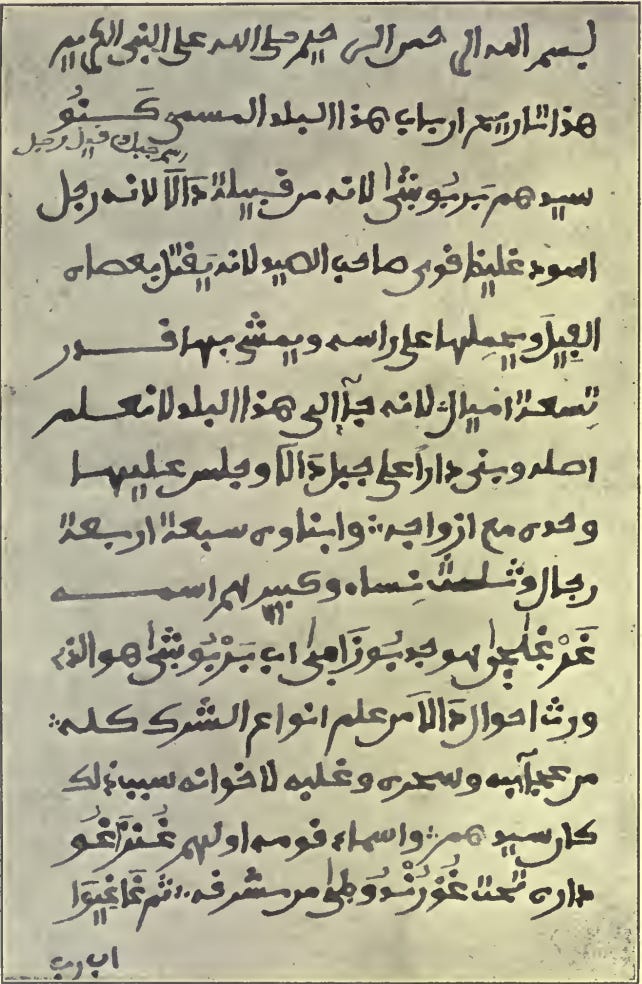 بسم الله الرحمن الرحيم صلى الله على النبي الكريم
هذا تاريخ ارباب هذا البلد المسمى كَنُو
اسم جبل رجل
سيدهم بَرْبُوشٰى لانه من قبيلة دَالَا لانه رجل
اسود غليظ قوي صاحب الصيد لانه يَقتل بعصاه
الفِيلَ ويحمِلها على راسه ويمشي بها قدر
تِسعة اميال لانه جآ إلى هذا البلد لا نعلم
اصله وبنى داراً على جبل دَالَا وجلس عليها
وحده مع ازواجه ∴ وابناوه سبعة اربعة
رجال وثلث نِساء وكبيرهم اسمه
غَرْغَاجٰى هو جد بُوزَامٰى اب بَرْبُوشٰى هو الذي
ورث احوال دَالَا من علم انواع الشرك كله ∴
من عجآيبه وسحره وغلبه لاخوانه سبب ذلك
كان سيدهم ∴ واسماء قومه اولهم غُنْزَاغُو
داره تحت غُوْرُنْدُوطٰى من مشرقه ∴ ثم غَاغِيوَا
اب رب